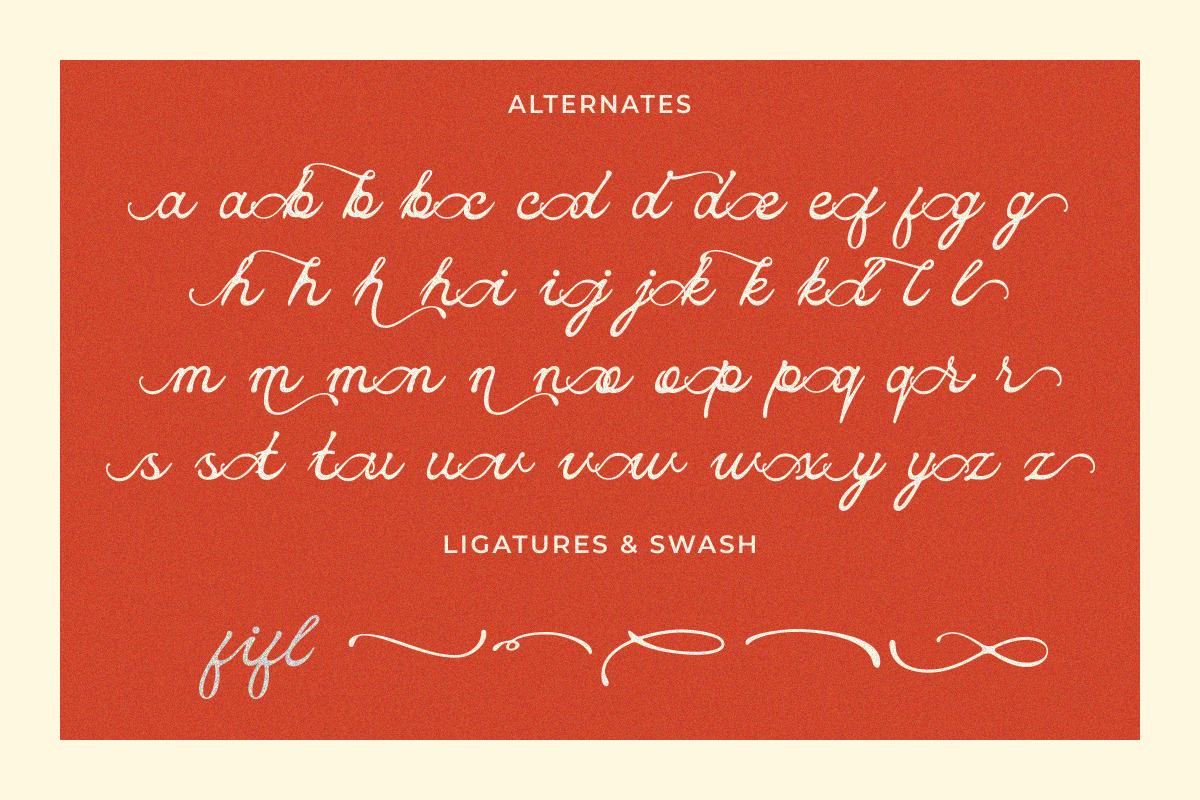 ALTERNATES
a ab b bc cd d de ef fg g
h h h hi ij jk k kl l l
m m mn n no op pq qr r
s st tu uv vw wxy yz z
LIGATURES & SWASH
fifl